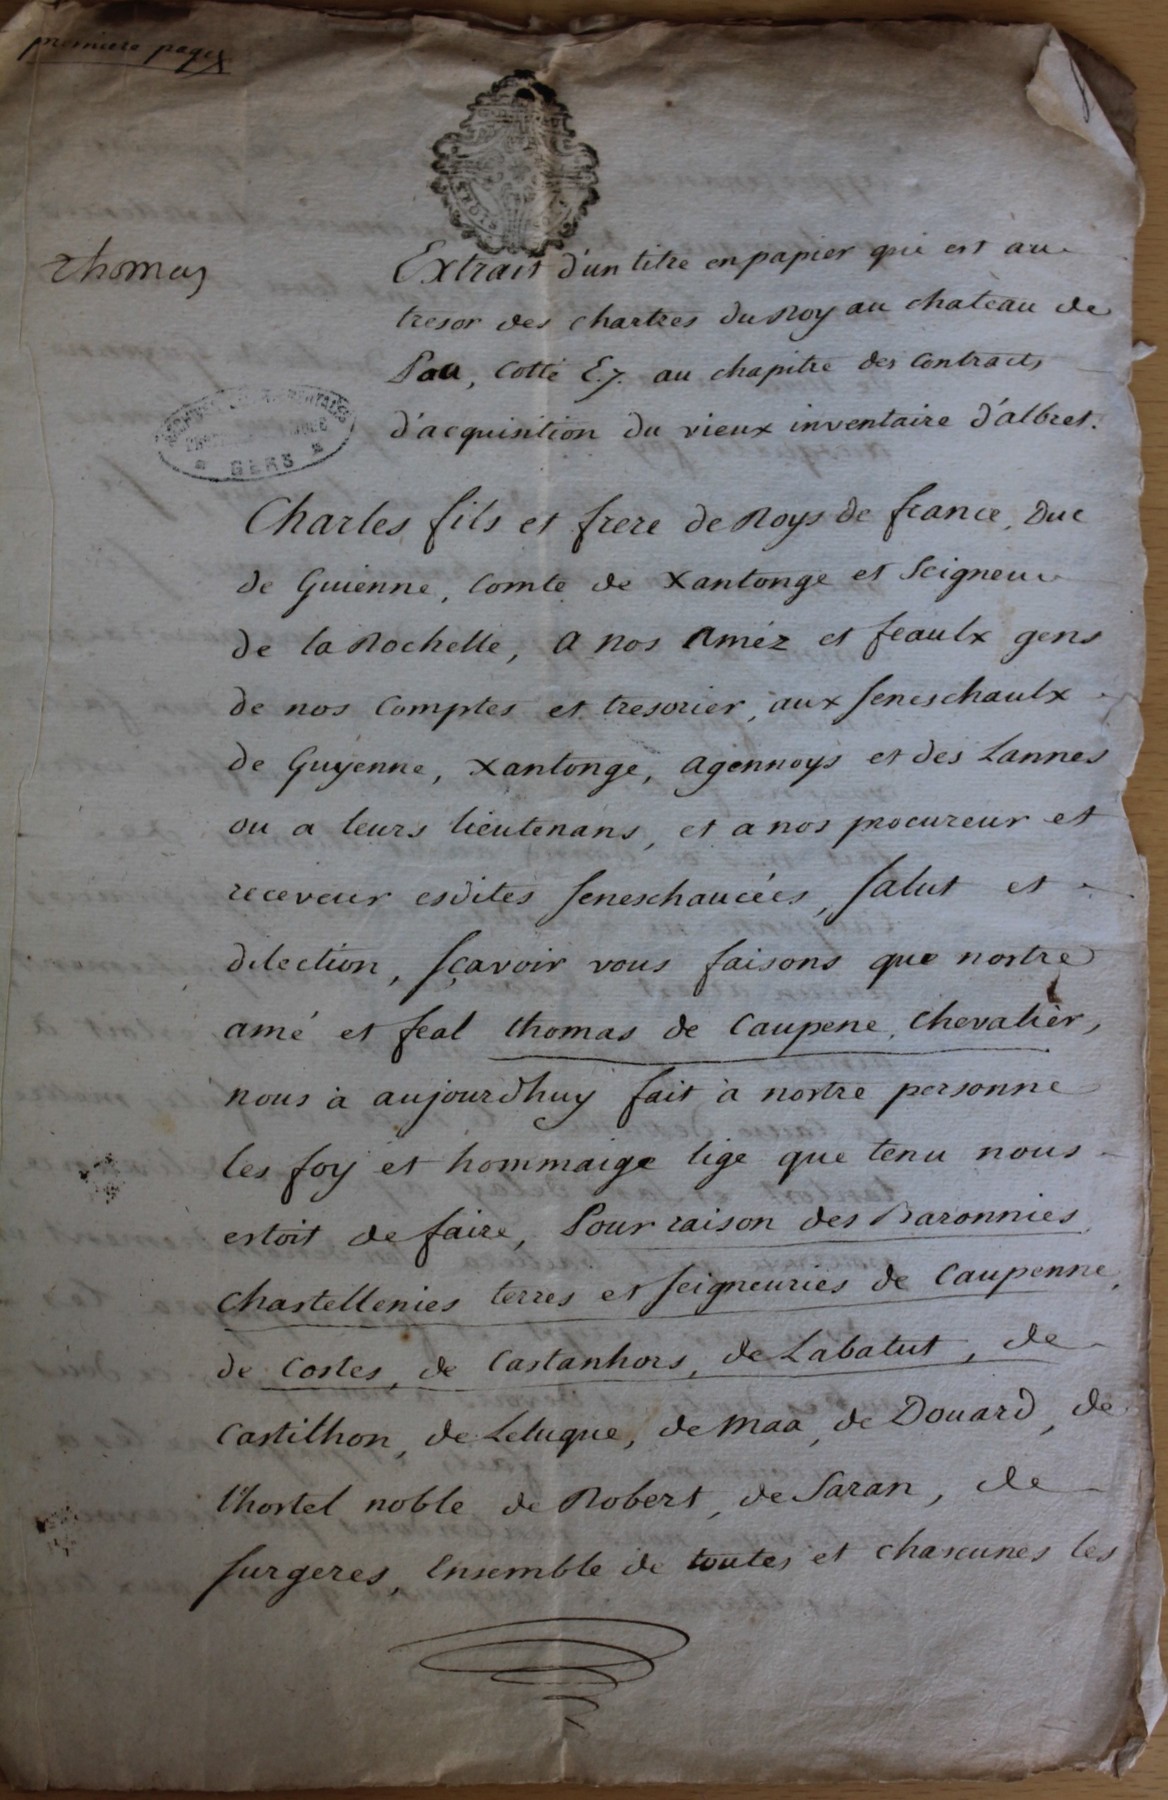 premiere page
thomas
Extrait d'un titre en papier qui est au
tresor des chartres du Roy au chateau de
Pau, cotté E.7. au chapitre des contracts
d'acquisition du vieux inventaire d'albret.
GERS
Charles fils et frere de Roys de france, Duc
de Guienne, Comte de Xantonge et Seigneur
de la Rochelle, a nos Améz et feaulx gens
de nos Comptes et tresorier, aux seneschaulx
de Guyenne, Xantonge, agennoys et des Lannes
ou a leurs lieutenans, et a nos procureur et
receveur esdites seneschaucées, salut et
dilection, sçavoir vous faisons que nostre
amé et feal thomas de Caupene, chevalier,
nous à aujourdhuy fait à nostre personne
les foy et hommaige lige que tenu nous
estoit de faire, Pour raison des Baronnies
chastellenies terres et seigneuries de Caupenne,
de Costes, de Castanhors, de Labatut, de
Castilhon, de Leluque, de maa, de Douard, de
l'hostel noble de Robert, de Saran, de
surgeres, Ensemble de toutes et chascunes les